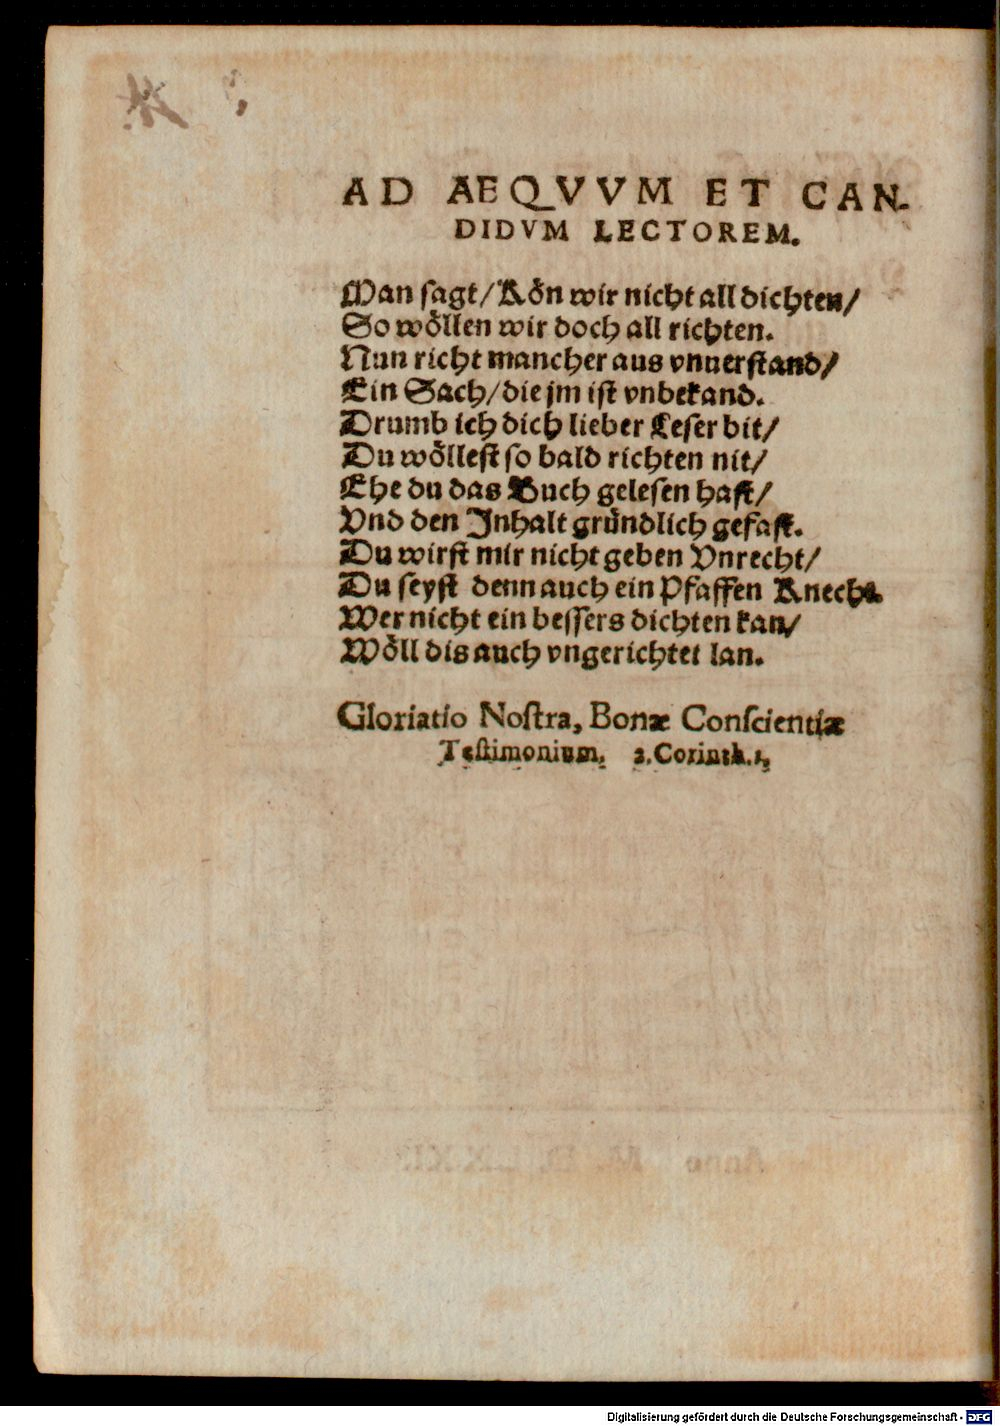 AD AEQVVM ET CAN-
DIDVM LECTOREM.
Man sagt/ Koͤn wir nicht all dichten/
So woͤllen wir doch all richten.
Nun richt mancher aus vnuerstand/
Ein Sach/ die jm ist vnbekand.
Drumb ich dich lieber Leser bit/
Du woͤllest so bald richten nit/
Ehe du das Buch gelesen hast/
Vnd den Jnhalt gruͤndlich gefast.
Du wirst mir nicht geben Vnrecht/
Du seyst denn auch ein Pfaffen Knecht.
Wer nicht ein bessers dichten kan/
Woͤll dis auch vngerichtet lan.
Gloriatio Noſtra, Bonæ Conſcientiæ
Teſtimonium. 2. Corinth. 1.
Digitalisierung gefördert durch die Deutsche Forschungsgemeinschaft - DFG